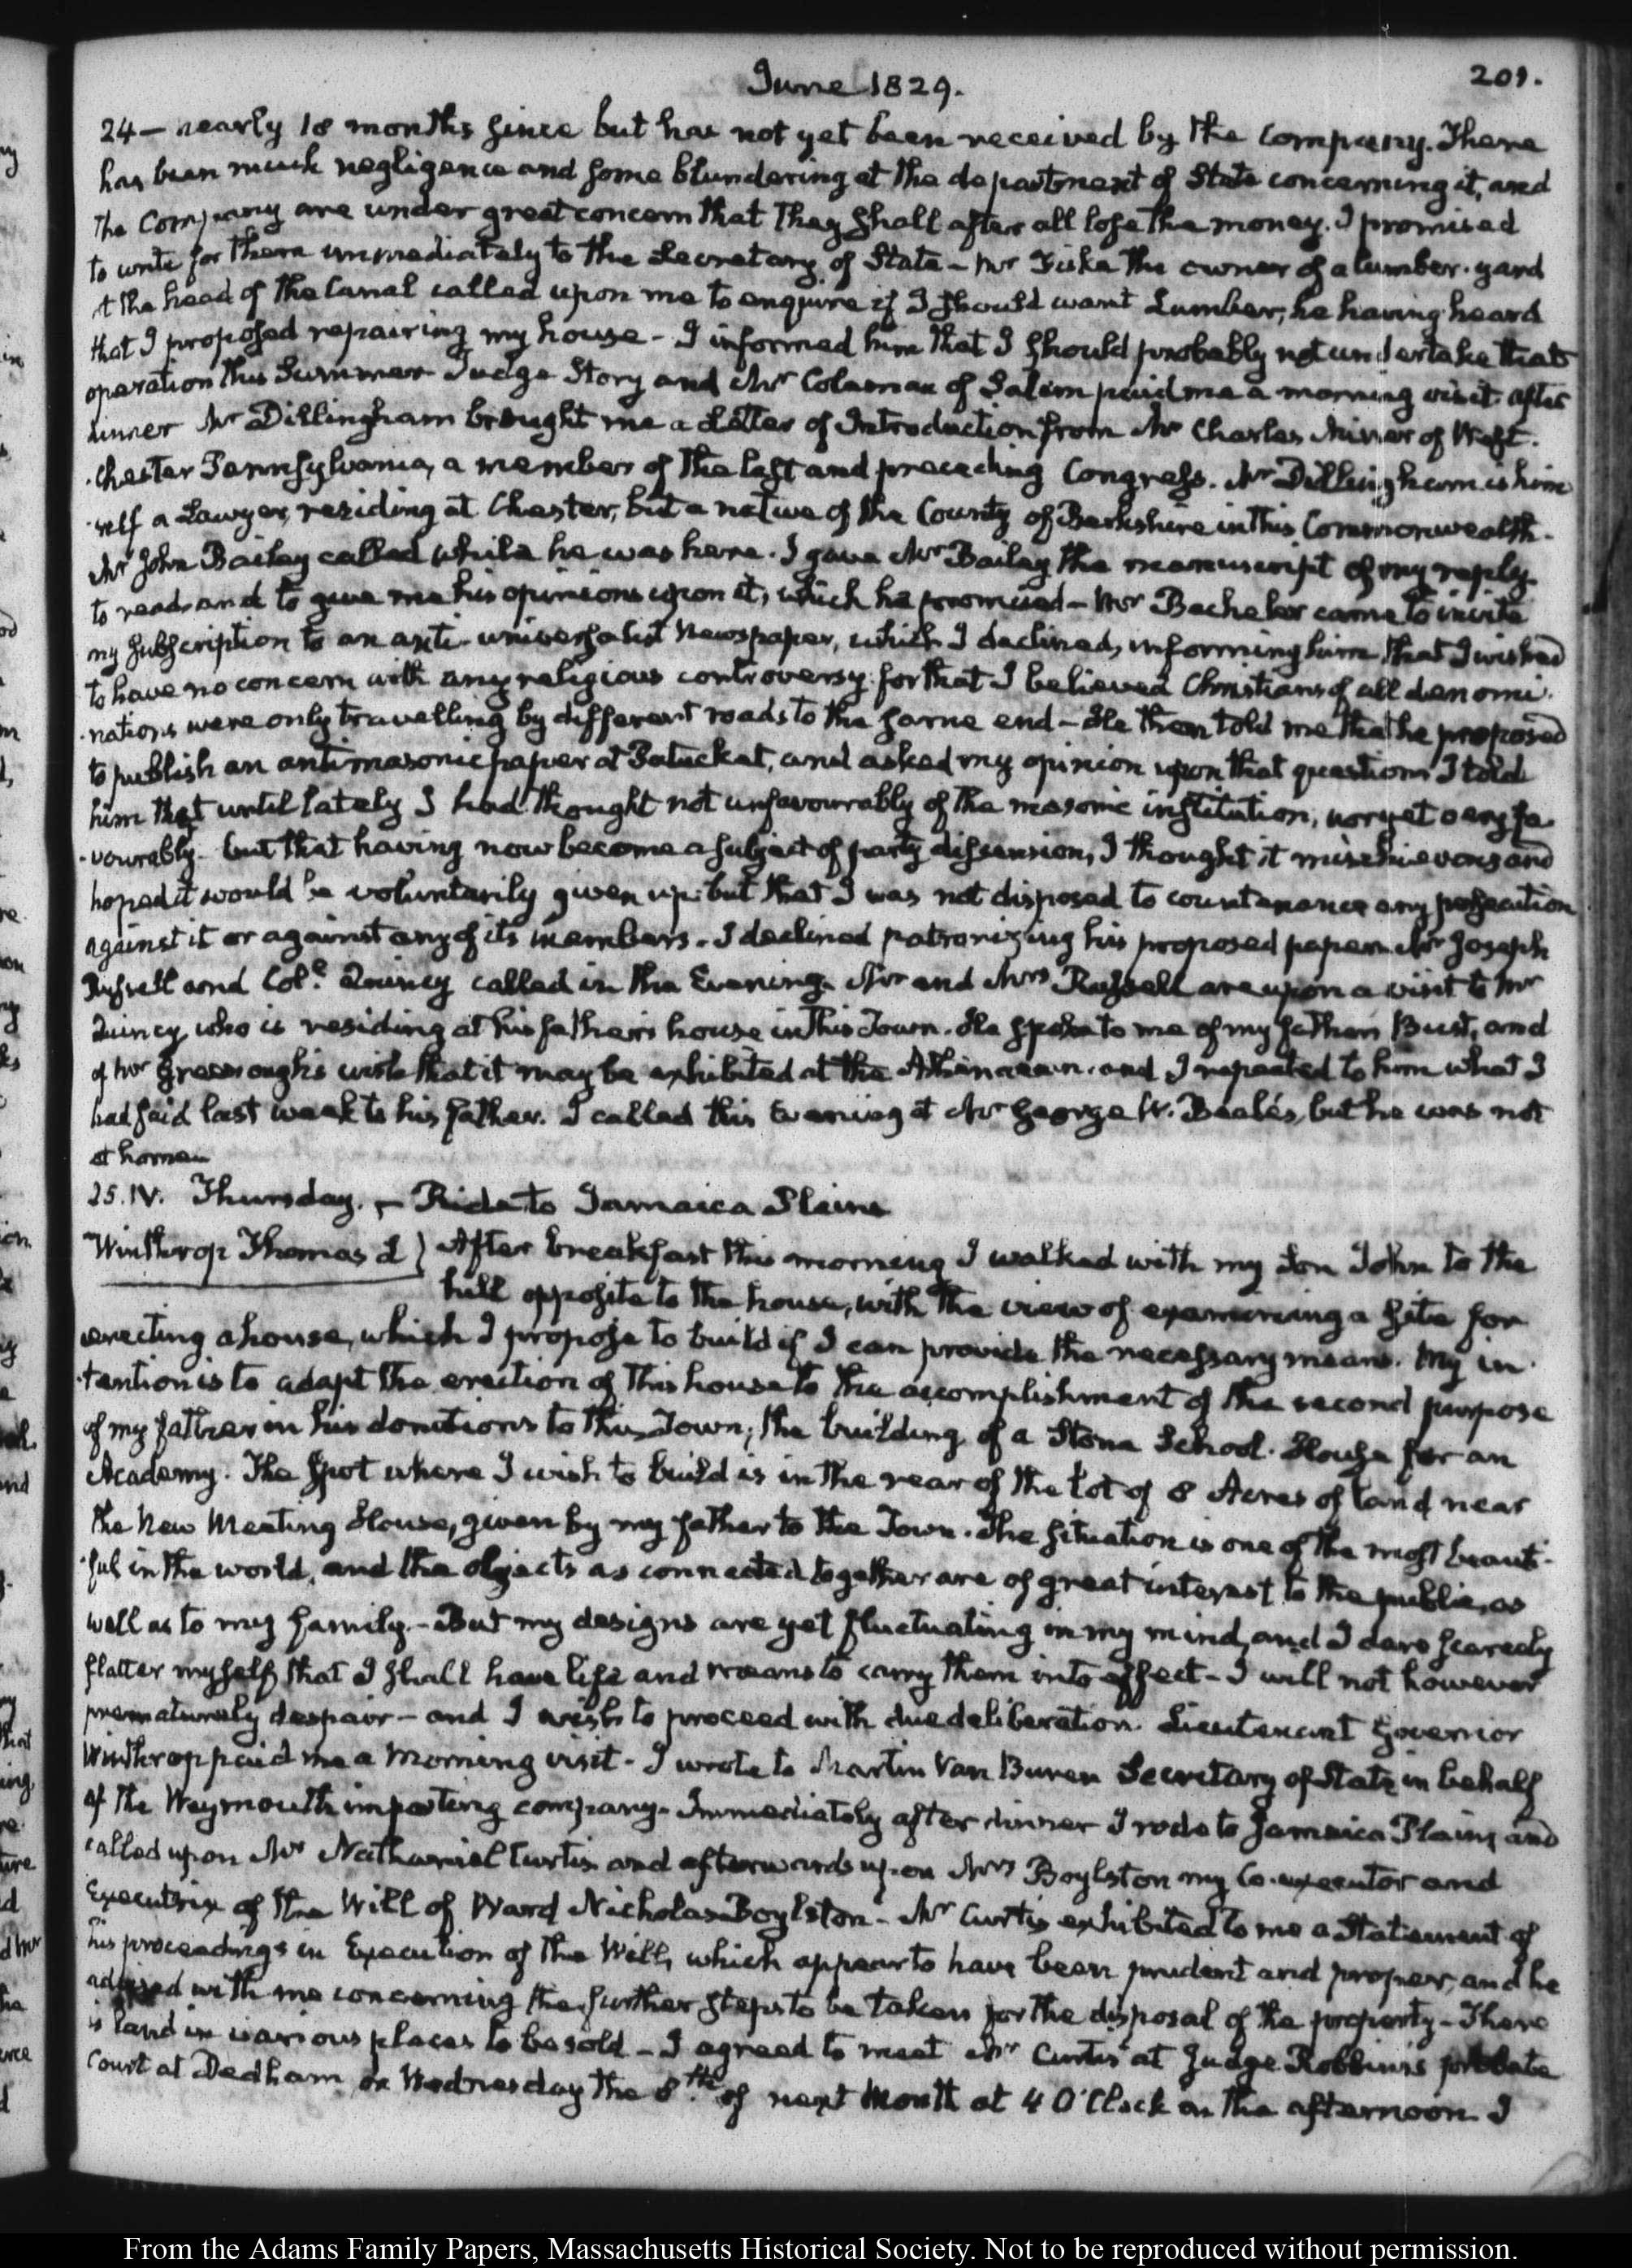 June 1829.
209.
24 — nearly 18 months since but has not yet been received by the Company. There
has been much negligence and some blundering at the department of State concerning it, and
the Company are under great concern that they shall after all lose the money. I promised
to write for them immediately to the Secretary of State — Mr Fiske the owner of a lumber-yard
at the head of the Canal called upon me to enquire if I should want Lumber, he having heard
that I proposed repairing my house — I informed him that I should probably not undertake that
operation this Summer Judge Story and Mr Colaman of Salem paid me a morning visit. after
dinner Mr Dillingham brought me a Letter of Introduction from Mr Charles Miner of West-
-Chester Pennsylvania, a member of the last and preceding Congress. Mr Dillingham is him
-self a Lawyer, residing at Chester, but a native of the County of Berkshire in this Commonwealth-
Mr John Bailey called while he was here. I gave Mr Bailey the manuscript of my reply
to read, and to give me his opinions upon it, which he promised — Mr Bacheler came to invite
my subscription to an anti-universalist Newspaper, which I declined, informing him that I wished
to have no concern with any religious controversy for that I believed Christians of all denomi-
-nations were only travelling by different roads to the same end — He then told me that he proposed
to publish an antimasonic paper at Patucket, and asked my opinion upon that question I told
him that until lately I had thought not unfavourably of the masonic institution, nor yet very fa-
-vourably — but that having now become a subject of party dissension, I thought it mischievous and
hoped it would be voluntarily given up. but that I was not disposed to countenance any persecution
against it or against any of its members. I declined patronizing his proposed paper. Mr Joseph
Russell and Coll. Quincy called in the Evening. Mr and Mrs Russell are upon a visit to Mr
Quincy, who is residing at his father's house in this Town. He spoke to me of my father's Bust, and
of Mr Greenough's wish that it may be exhibited at the Athenaeum. and I repeated to him what I
had said last week to his father. I called this Evening at Mr George W. Beale's, but he was not
at home.
25. IV. Thursday. — Ride to Jamaica Plains
Winthrop Thomas L } After breakfast this morning I walked with my Son John to the
hill opposite to the house, with the view of examining a site for
erecting a house, which I propose to build if I can provide the necessary means. My in-
-tention is to adapt the erection of this house to the accomplishment of the second purpose
of my father in his donations to this Town, the building of a Stone School-House for an
Academy. The spot where I wish to build is in the rear of the lot of 8 Acres of land near
the New Meeting House, given by my father to the Town. The situation is one of the most beauti-
-ful in the world, and the objects as connected together are of great interest to the public, as
well as to my family. — But my designs are yet fluctuating in my mind, and I dare scarcely
flatter myself that I shall have life and means to carry them into effect — I will not however
prematurely despair — and I wish to proceed with due deliberation. Lieutenant Governor
Winthrop paid me a morning visit. I wrote to Martin Van Buren Secretary of State in behalf
of the Weymouth importing company. Immediately after dinner I rode to Jamaica Plains and
called upon Mr Nathaniel Curtis and afterwards upon Mrs Boylston my Co-executor and
Executrix of the Will of Ward Nicholas Boylston — Mr Curtis exhibited to me a Statement of
his proceedings in Execution of the Will, which appear to have been prudent and proper, and he
advised with me concerning the further steps to be taken for the disposal of the property — There
is land in various places to be sold — I agreed to meet Mr Curtis at Judge Robbins's probate
Court at Dedham on Wednesday the 8th. of next Month at 4 O'Clock in the afternoon I
From the Adams Family Papers, Massachusetts Historical Society. Not to be reproduced without permission.